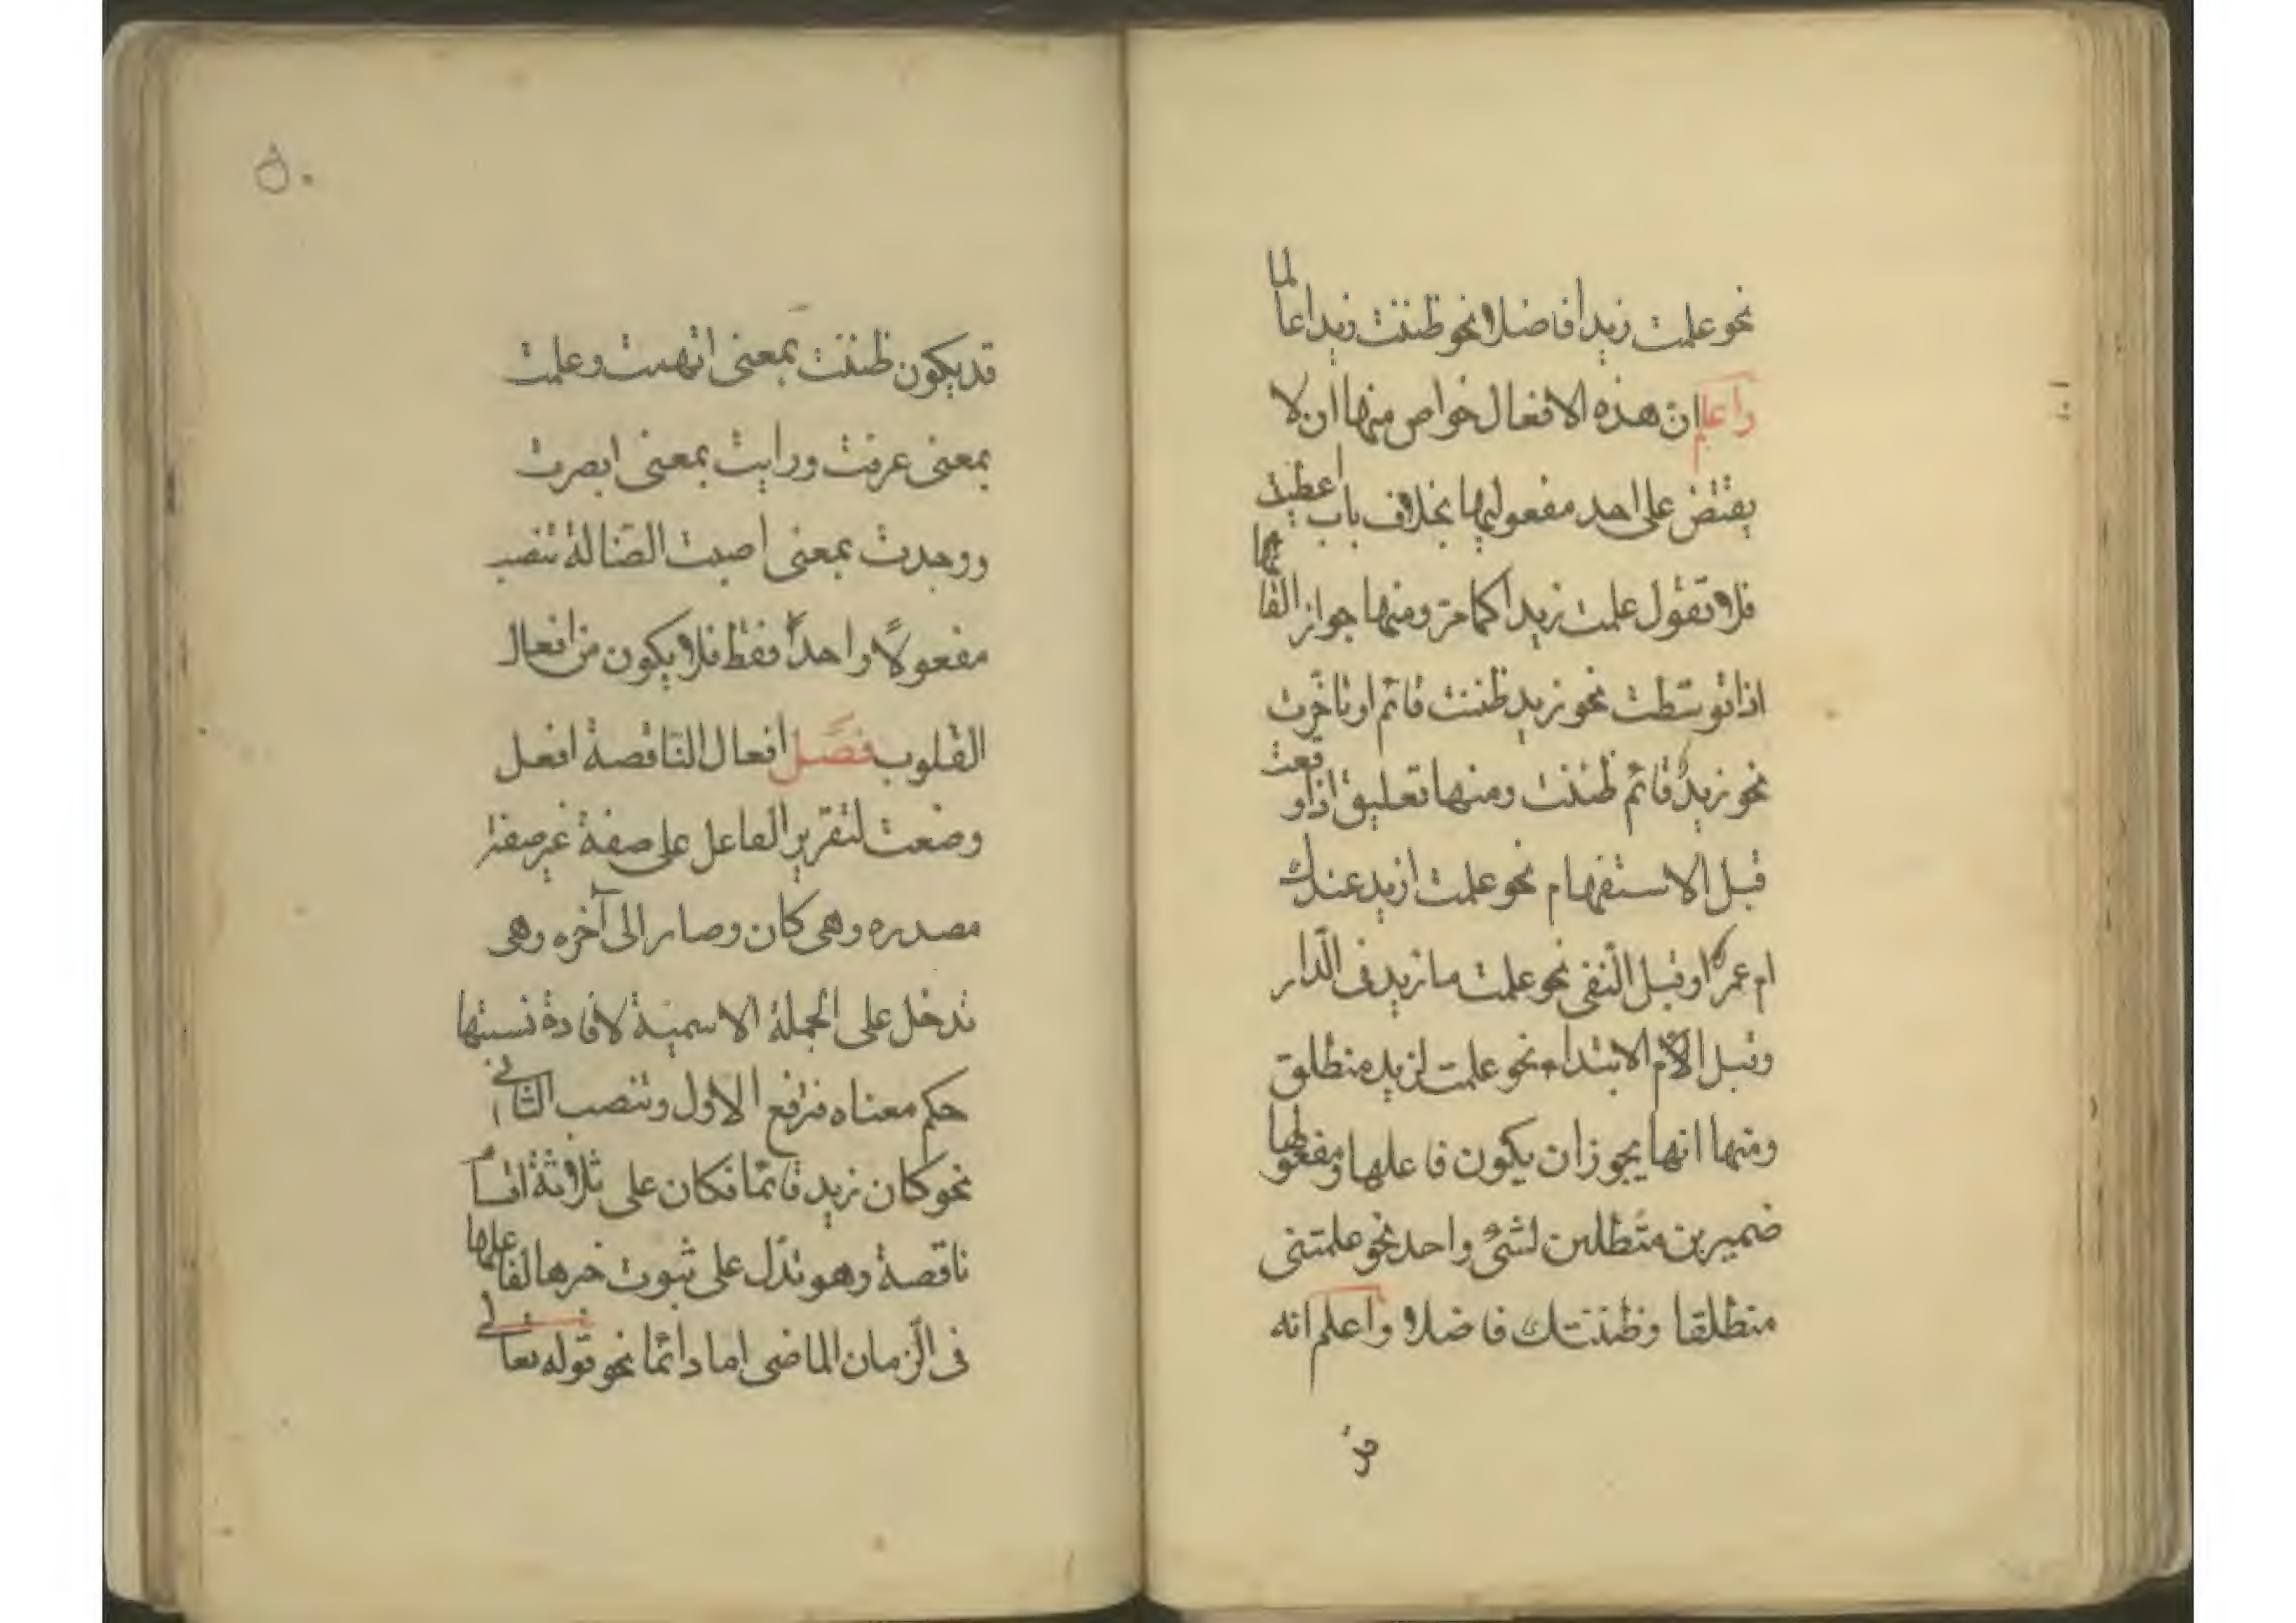 نحو علمت زيدا فاضلا ونحو ظننت زيدا عالما
واعلم ان هذه الافعال خواص منها ان لا
يقتض على احد مفعوليها بخلاف باب اعطيت
فلا تقول علمت زيدا كما مر ومنها جواز الغائها
اذا توسّطت نحو زيد ظننت قائم او تأخّرت
نحو زيدٌ قائم ظننت ومنها تعليق اذا وقعت
قبل الاستفهام نحو علمت ازيد عندك
ام عمرو او قبل النّفى نحو علمت ما زيد فى الدّار
وقبل الآم الابتداء نحو علمت لزيد منطلق
ومنها انها يجوز ان يكون فاعلها ومفعولها
ضميرين متّطلين لشىء واحد نحو علمتنى
منطلقا وظننتك فاضلا واعلم انه
قد يكون ظننت بمعنى اتهمت وعلمت
بمعنى عرفت ورايت بمعنى ابصرت
ووجدت بمعنى اصبت الضّالة تنصب
مفعولاً واحداً فقط فلا يكون من افعال
القلوب فصل افعال النّاقصة افعل
وضعت لتقرير الفاعل على صفة غير صفة
مصدره وهى كان وصار الى آخره وهى
تدخل على الجملة الاسمية لافادة نسبتها
حكم معناه فترفع الاول وتنصب الثانى
نحو كان زيد قائما فكان على ثلاثة اقسام
ناقصة وهو تدّل على ثبوت خبرها لفاعلها
فى الزّمان الماضى اما دائما نحو قوله تعالى